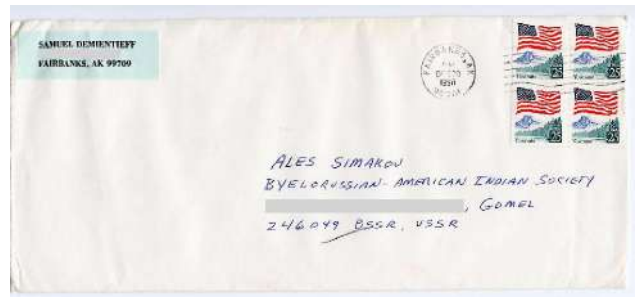 SAMUEL DEMIENTIEFF
FAIRBANKS, AK 99709
FAIRBANKS, AK
PM
1990
25
25
25
25
ALES SIMAKOV
BYELORUSSIAN-AMERICAN INDIAN SOCIETY
, GOMEL
246049 BSSR, USSR